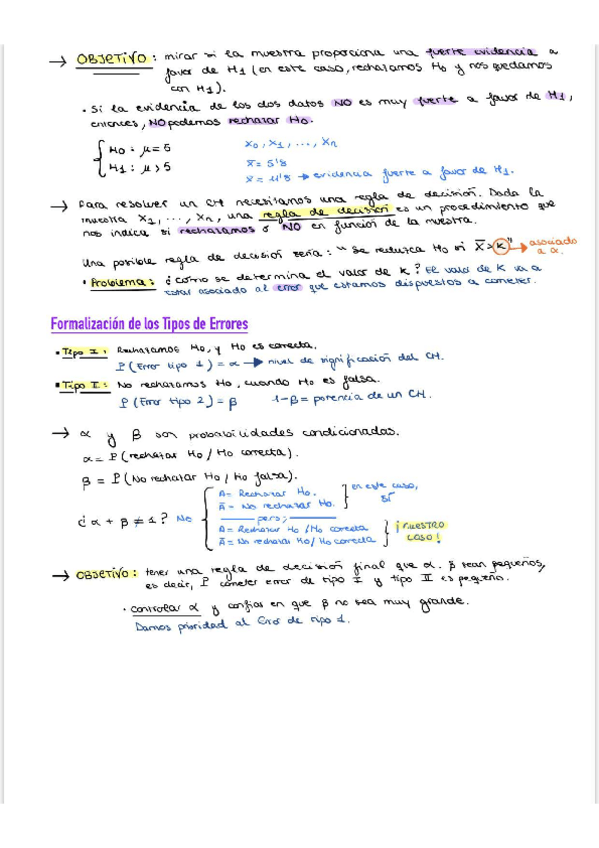 → OBJETIVO: mirar si la muestra proporciona una fuerte evidencia a
favor de H1 (en este caso, rechazamos Ho y nos quedamos
con H1).
• Si la evidencia de los dos datos NO es muy fuerte a favor de H1,
entonces, NO podemos rechazar Ho.
Ho: μ = 5
H1: μ > 5
x₀, x₁, ..., xn
x̄ = 5'8
x̄ = 4'8 → evidencia fuerte a favor de H1.
→ Para resolver un CH necesitamos una regla de decisión. Dada la
muestra X1, ..., Xn, una regla de decisión es un procedimiento que
nos indica si rechazamos o NO en función de la muestra.
Una posible regla de decisión sería: "Se rechaza Ho si X̄ > k" → asociado
a α.
• Problema: ¿cómo se determina el valor de k? El valor de K va a
estar asociado al error que estamos dispuestos a cometer.
Formalización de los Tipos de Errores
• Tipo I: Rechazamos Ho, y Ho es correcta.
P (Error tipo 1) = α → nivel de significación del CH.
• Tipo I: No rechazamos Ho, cuando Ho es falsa.
P (Error tipo 2) = β 1-β = potencia de un CH.
→ α y β son probabilidades condicionadas.
α = P (rechazar Ho / Ho correcta).
β = P (No rechazar Ho / Ho falsa).
¿α + β ≠ 1? No
A = Rechazar Ho.
Ā = No rechazar Ho.
en este caso,
SÍ
pero;
A = Rechazar Ho / Ho correcta
Ā = No rechazar Ho / Ho correcta
¡NUESTRO
CASO!
→ OBJETIVO: tener una regla de decisión final que α. β sean pequeños,
es decir, P cometer error de tipo I y tipo II es pequeño.
• controlar α y confiar en que β no sea muy grande.
Damos prioridad al Error de tipo 1.